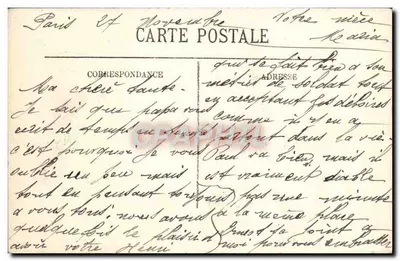 Paris 27 Novembre
Votre nièce
Maria
CARTE POSTALE
CORRESPONDANCE
ADRESSE
Ma chère tante
Je sait que papa vous
écrit de temps en temps
c'est pourquoi Je vous
oublie un peu mais
tout en pensant toujours
a vous tous. nous avons
quelques fois le plaisir d
avoir votre Henri
qui se fait bien a son
métier de soldat tout
en acceptant les déboires
comme il y en a
partout dans la vie
Paul va bien, mais il
est vraiment diable
pas une minute
a la même place
Ernest se joint a
moi pour vous embrasser